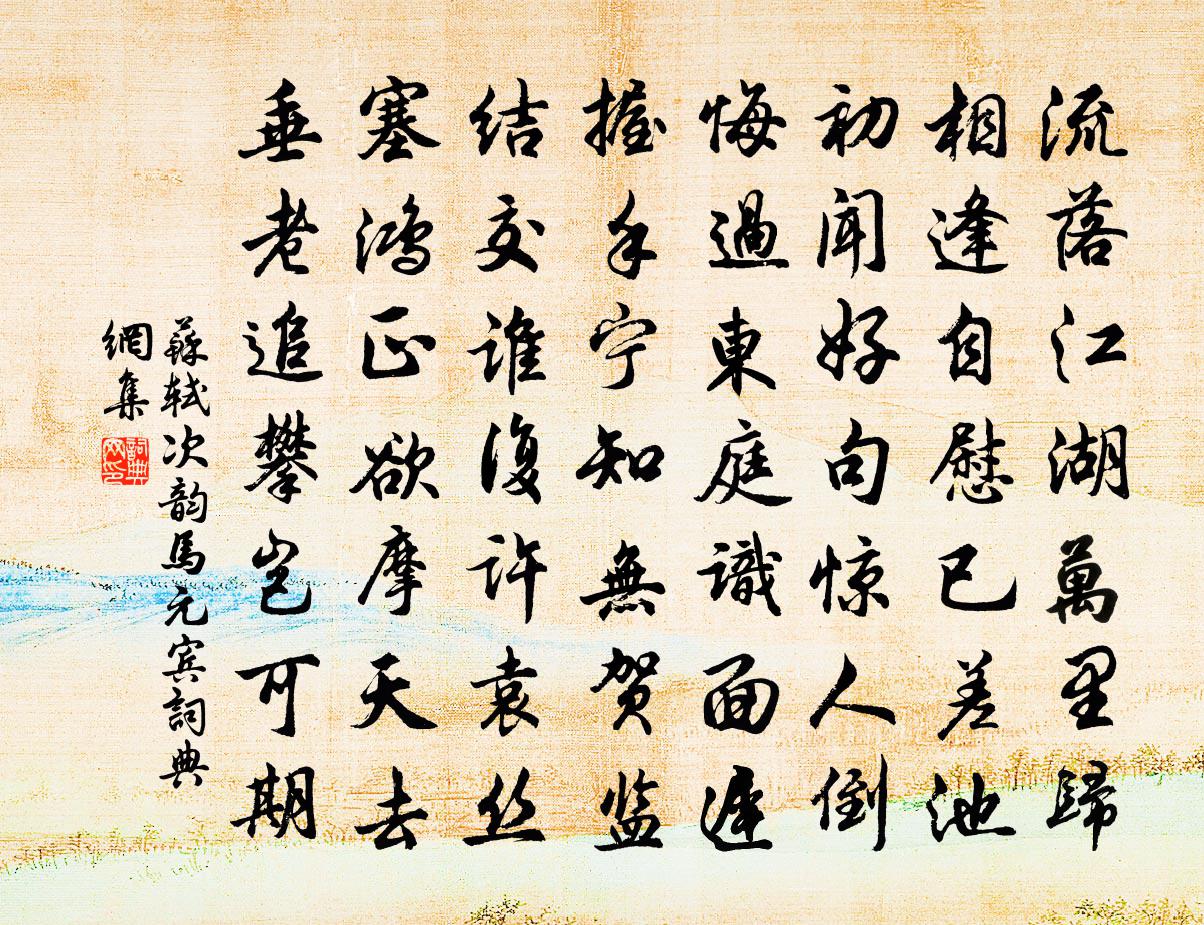 流落江湖萬里歸
相逢自慰已差池
初闻好句惊人倒
悔過東庭識面遲
握手宁知無贺监
结交谁復许袁丝
塞鸿正欲摩天去
垂老追攀岂可期
蘇轼次韵馬元宾詞典
網集
詞典
网印